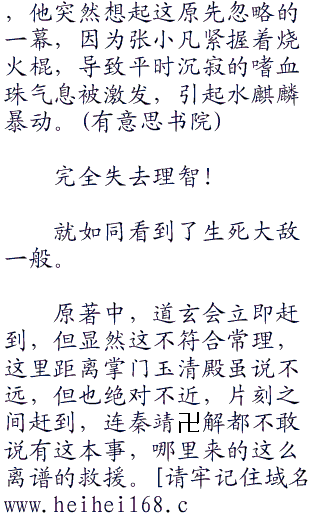 ，他突然想起这原先忽略的
一幕，因为张小凡紧握着烧
火棍，导致平时沉寂的嗜血
珠气息被激发，引起水麒麟
暴动。(有意思书院)
完全失去理智！
就如同看到了生死大敌
一般。
原著中，道玄会立即赶
到，但显然这不符合常理，
这里距离掌门玉清殿虽说不
远，但也绝对不近，片刻之
间赶到，连秦靖卍解都不敢
说有这本事，哪里来的这么
离谱的救援。[请牢记住域名
www.heihei168.c